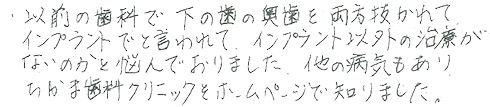 ・以前の歯科で下の歯の奥歯を両方抜かれて
インプラントでと言われて、インプラント以外の治療が
ないのかと悩んでおりました。他の病気もあり
ちかま歯科クリニックをホームページで知りました。